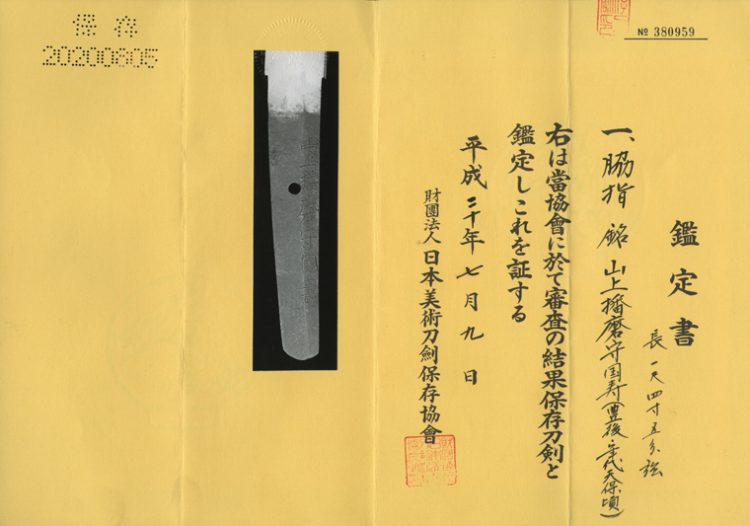 保存
20200805
№ 380959
鑑定書
長 一尺四寸五分強
一、脇指 銘 山上播磨守国寿(豊後・年代天保頃)
右は當協會に於て審査の結果保存刀剣と
鑑定しこれを証する
平成二十年七月九日
財團法人 日本美術刀劍保存協會